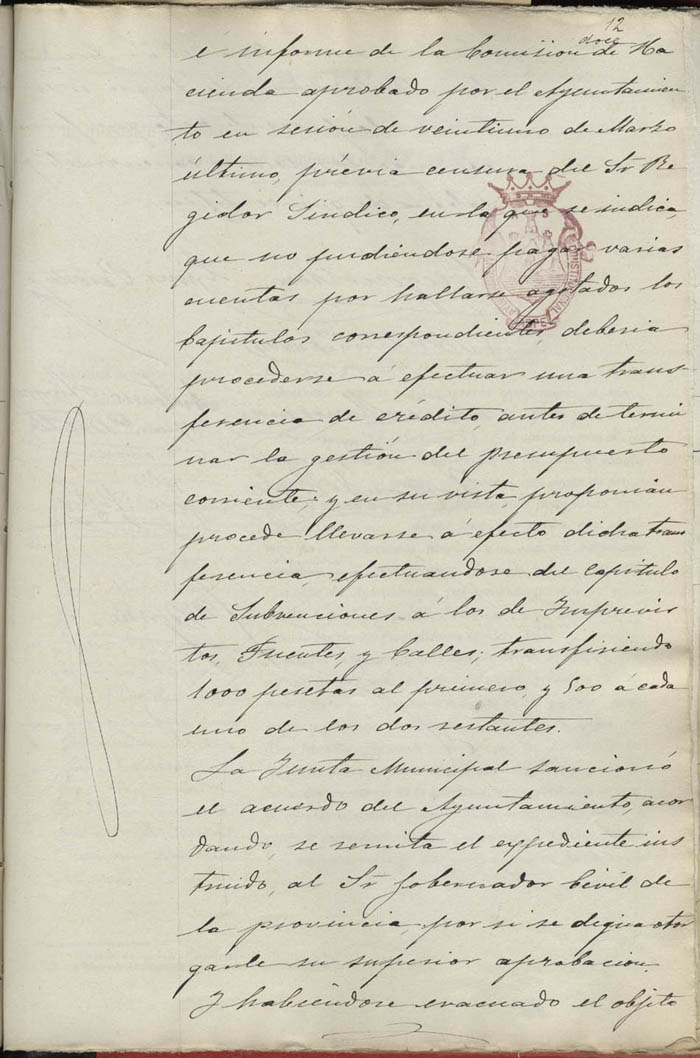 12
doce
é informe de la Comisión de Ha
cienda aprobado por el Ayuntamien
to en sesión de veintiuno de Marzo
último, prévia censura del Sr Re
gidor Sindico, en la que se indica,
que no pudiéndose pagar varias
cuentas por hallarse agotados los
Capitulos correspondientes, deberia
procederse á efectuar una trans
ferencia de crédito, antes de termi
nar la gestión del presupuesto
corriente; y en su vista, proponian
procede llevarse á efecto dicha trans
ferencia, efectuandose del Capitulo
de Subvenciones á los de Imprevis
tos, Fuentes, y Calles; transfiriendo
1000 pesetas al primero, y 500 á cada
uno de los dos restantes.
La Junta Municipal sancionó
el acuerdo del Ayuntamiento, acor
dando, se remita el expediente ins
truido, al Sr Gobernador Civil de
la provincia, por si se digna otor
garle su superior aprobacion.
Y habiéndose evacuado el objeto